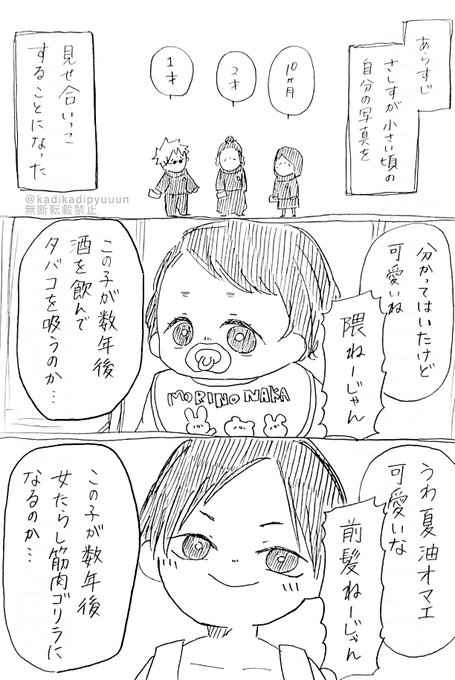 あらすじ
さしすが小さい頃の
自分の写真を
見せ合いっこ
することになった
10ヶ月
2才
1才
@kadikadipyuuun
無断転載禁止
分かってはいたけど
可愛いね
隈ねーじゃん
この子が数年後
酒を飲んで
タバコを吸うのか…
MORINO NAKA
うわ夏油オマエ
可愛いな
前髪ねーじゃん
この子が数年後
女たらし筋肉ゴリラに
なるのか…